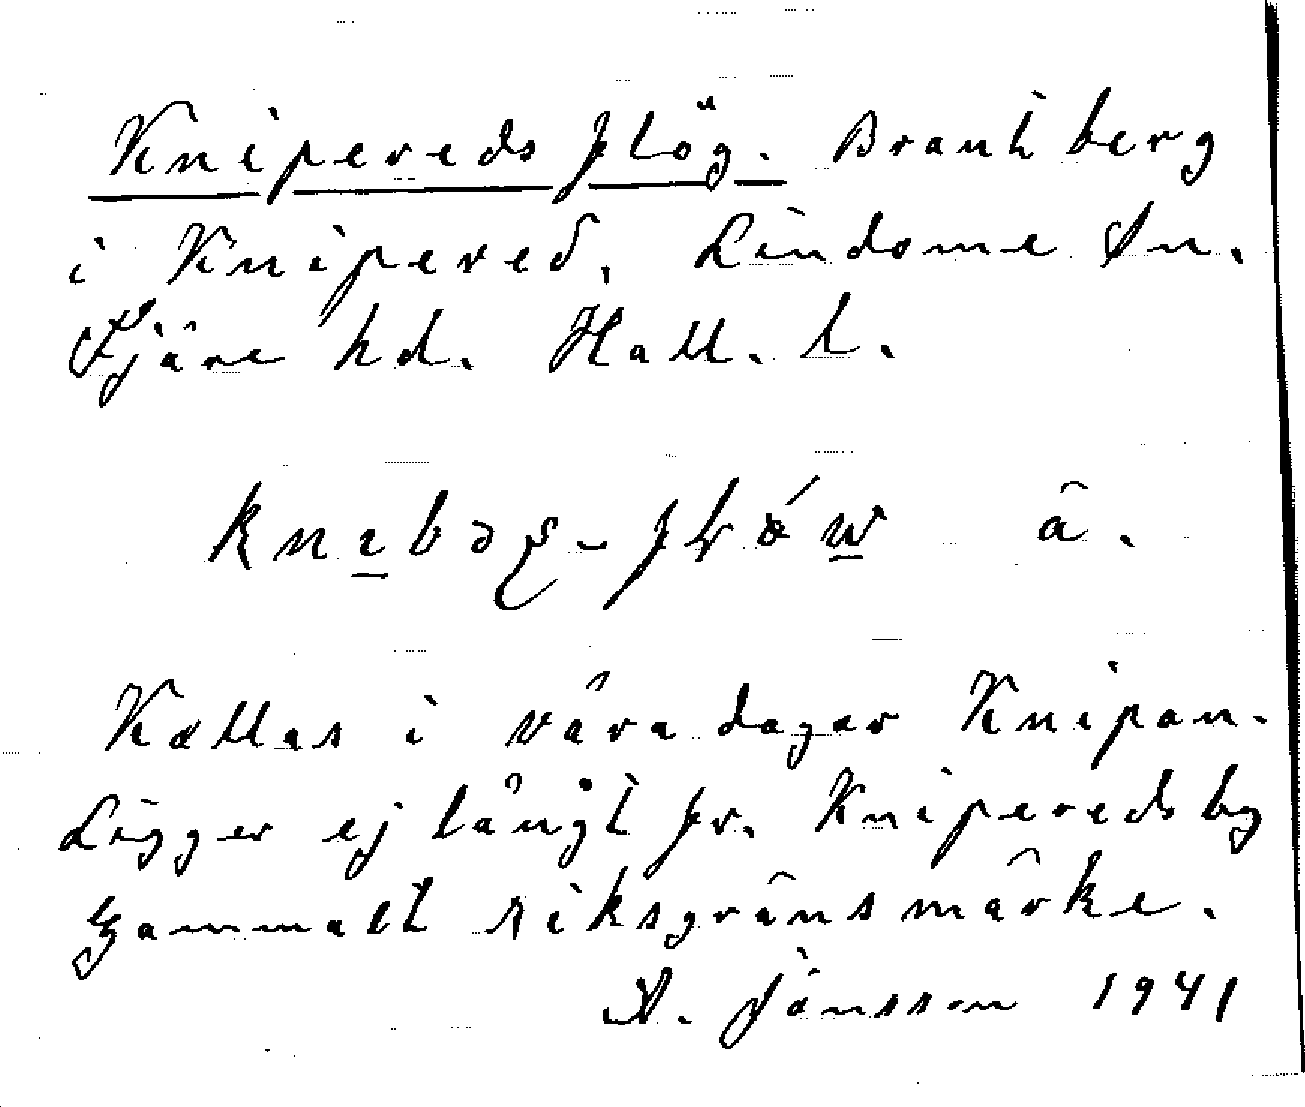 Knipereds flög. Brant berg
i Knipered, Lindome sn.
Fjäre hd. Hall. l.
â.
Kallas i våra dagar Knipan.
Ligger ej långt fr. Knipereds by
Gammalt riksgränsmärke.
A. Jansson 1941